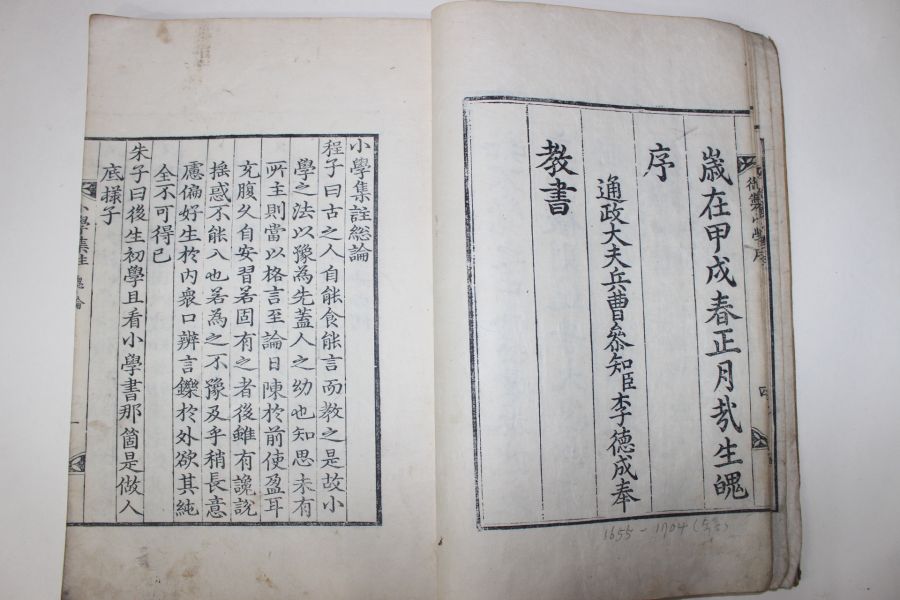 歲在甲戌春正月哉生魄
序
通政大夫兵曹參知臣李德成奉
教書
御製小學序
四
1655-1704
小學集註総論
程子曰古之人自能食能言而教之是故小
學之法以豫為先蓋人之幼也知思未有
所主則當以格言至論日陳於前使盈耳
充腹久自安習若固有之者後雖有讒說
搖惑不能入也若為之不豫及乎稍長意
慮偏好生於內衆口辨言鑠於外欲其純
全不可得已
朱子曰後生初學且看小學書那箇是做人
底樣子
小學集註 總論
一